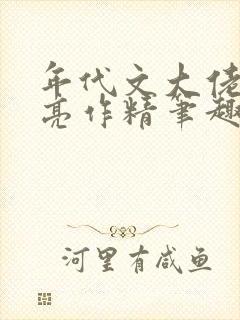 年代文大佬
亮作精笔趣
河里有咸鱼